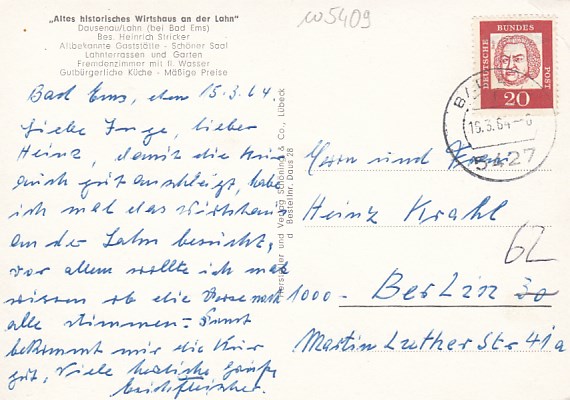 W5409
„Altes historisches Wirtshaus an der Lahn"
Dausenau/Lahn (bei Bad Ems)
Bes. Heinrich Stricker
Altbekannte Gaststätte - Schöner Saal
Lahnterrassen und Garten
Fremdenzimmer mit fl. Wasser
Gutbürgerliche Küche - Mäßige Preise
Bad Ems, den 15.3.64
Liebe Inge, lieber
Heinz, damit die Kur
auch gut anschlägt, habe
ich mal das Wirtshaus
an der Lahn besucht,
vor allem wollte ich mal
wissen ob die Verse noch
alle stimmen. Sonst
bekommt mir die Kur
gut, Viele herzliche Grüße
Hersteller und Verlag Schöning & Co., Lübeck
Bestellnr. Daus 28
DEUTSCHE BUNDESPOST
20
16.3.64
5427
Herrn und Frau
Heinz Krahl
62
1000 - Berlin 30
Martin Luther Str 41a